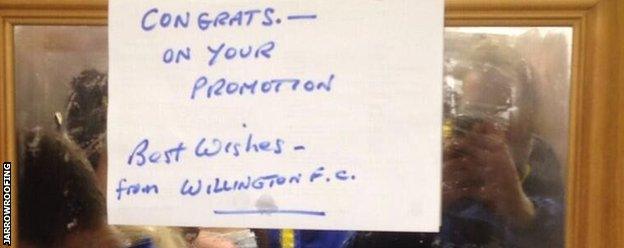 CONGRATS. —
ON YOUR
PROMOTION
Best Wishes -
from WILLINGTON F.C.
JARROWROOFING